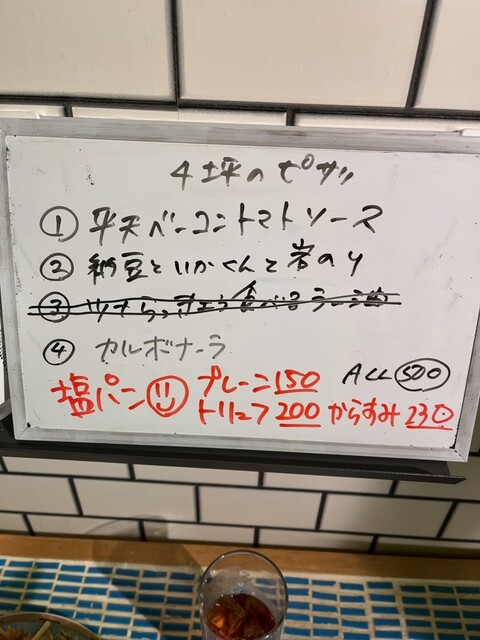 4坪のピザッ
① 平天ベーコントマトソース
② 納豆といかくんと岩のり
④ カルボナーラ
ALL 500
塩パン プレーン 150
トリュフ 200 からすみ 230